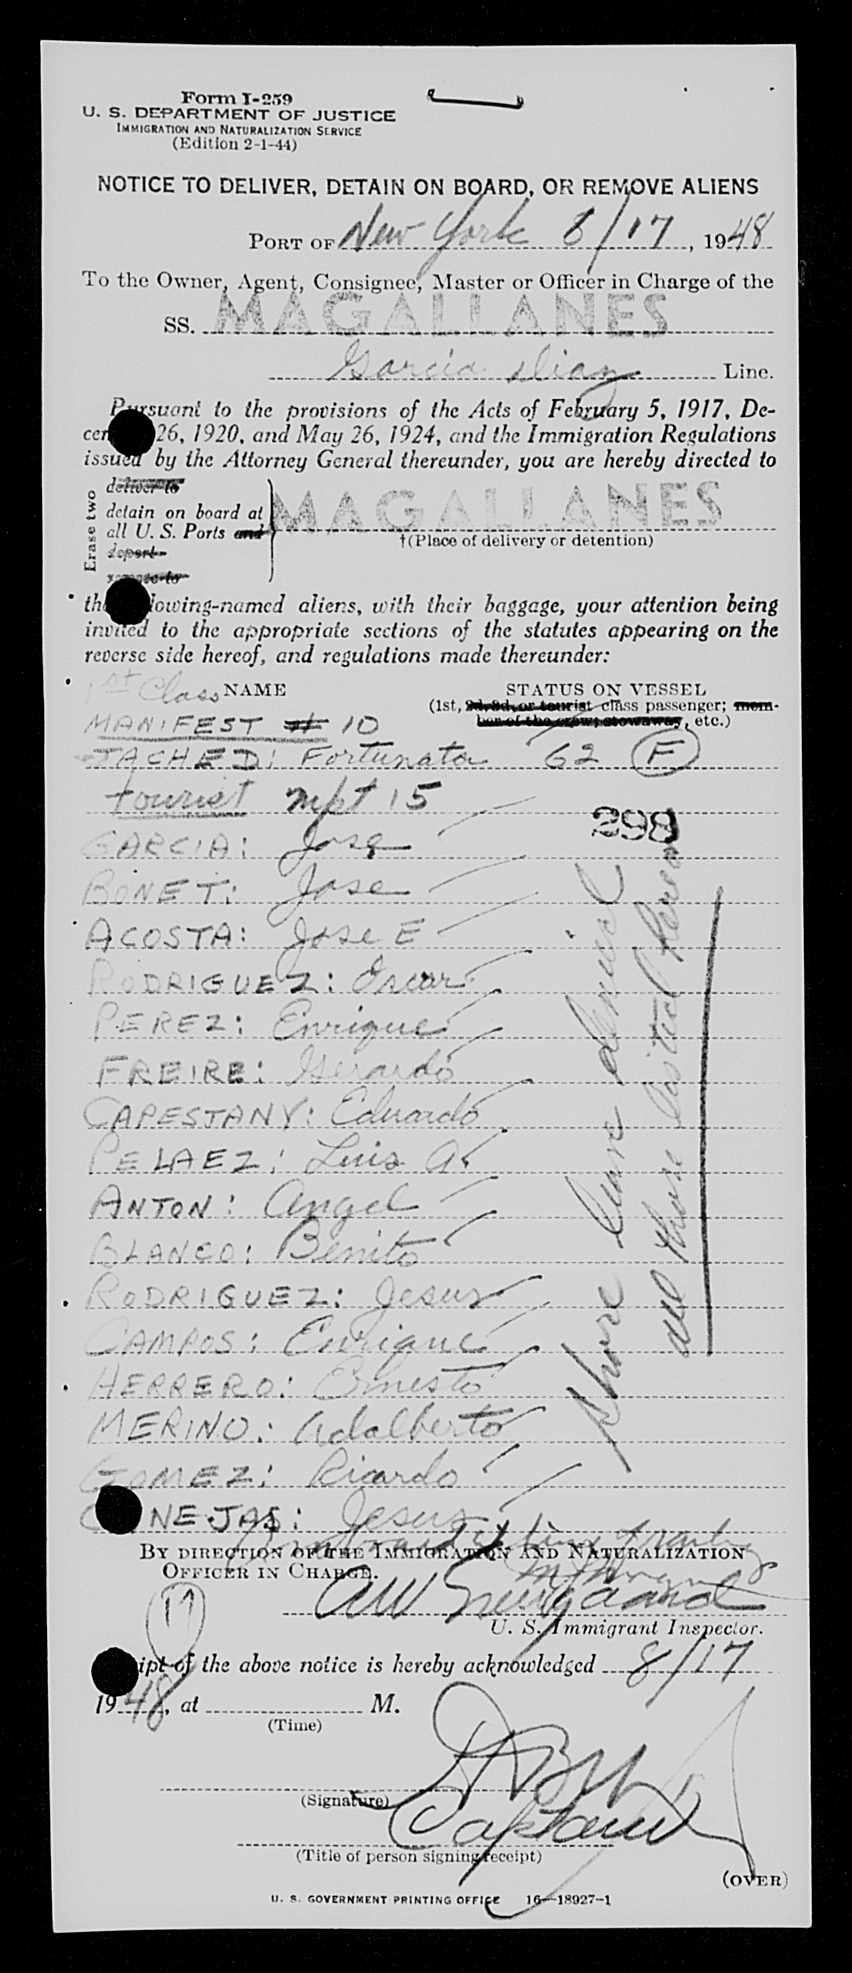 Form I-259
U. S. DEPARTMENT OF JUSTICE
IMMIGRATION AND NATURALIZATION SERVICE
(Edition 2-1-44)
NOTICE TO DELIVER, DETAIN ON BOARD, OR REMOVE ALIENS
PORT OF New York 8/17, 1948
To the Owner, Agent, Consignee, Master or Officer in Charge of the
SS. MAGALLANES
Garcia Diaz Line.
Pursuant to the provisions of the Acts of February 5, 1917, De-
cem 26, 1920, and May 26, 1924, and the Immigration Regulations
issued by the Attorney General thereunder, you are hereby directed to
Erase two
deliver to
detain on board at
all U. S. Ports and
deport
remove to
MAGALLANES
†(Place of delivery or detention)
the lowing-named aliens, with their baggage, your attention being
invited to the appropriate sections of the statutes appearing on the
reverse side hereof, and regulations made thereunder:
1st Class NAME STATUS ON VESSEL
(1st, 2d, 3d, or tourist class passenger; mem-
ber of the crew; stowaway, etc.)
MANIFEST # 10
JACHED: Fortunata 62 (F)
tourist mft 15
298
GARCIA: Jose
BONET: Jose
ACOSTA: Jose E
RODRIGUEZ: Oscar
PEREZ: Enrique
FREIRE: Gerardo
CAPESTANY: Eduardo
PELAEZ: Luis A.
ANTON: Angel
BLANCO: Benito
RODRIGUEZ: Jesus
CAMPOS: Enrique
HERRERO: Ernesto
MERINO: Adalberto
GOMEZ: Ricardo
C NEJAS: Jesus
Shore leave denied
all those listed hereon
BY DIRECTION OF THE IMMIGRATION AND NATURALIZATION
OFFICER IN CHARGE.
17
U. S. Immigrant Inspector.
ipt of the above notice is hereby acknowledged 8/17
1948, at M.
(Time)
(Signature)
Captain
(Title of person signing receipt)
(OVER)
U. S. GOVERNMENT PRINTING OFFICE 16—18927-1